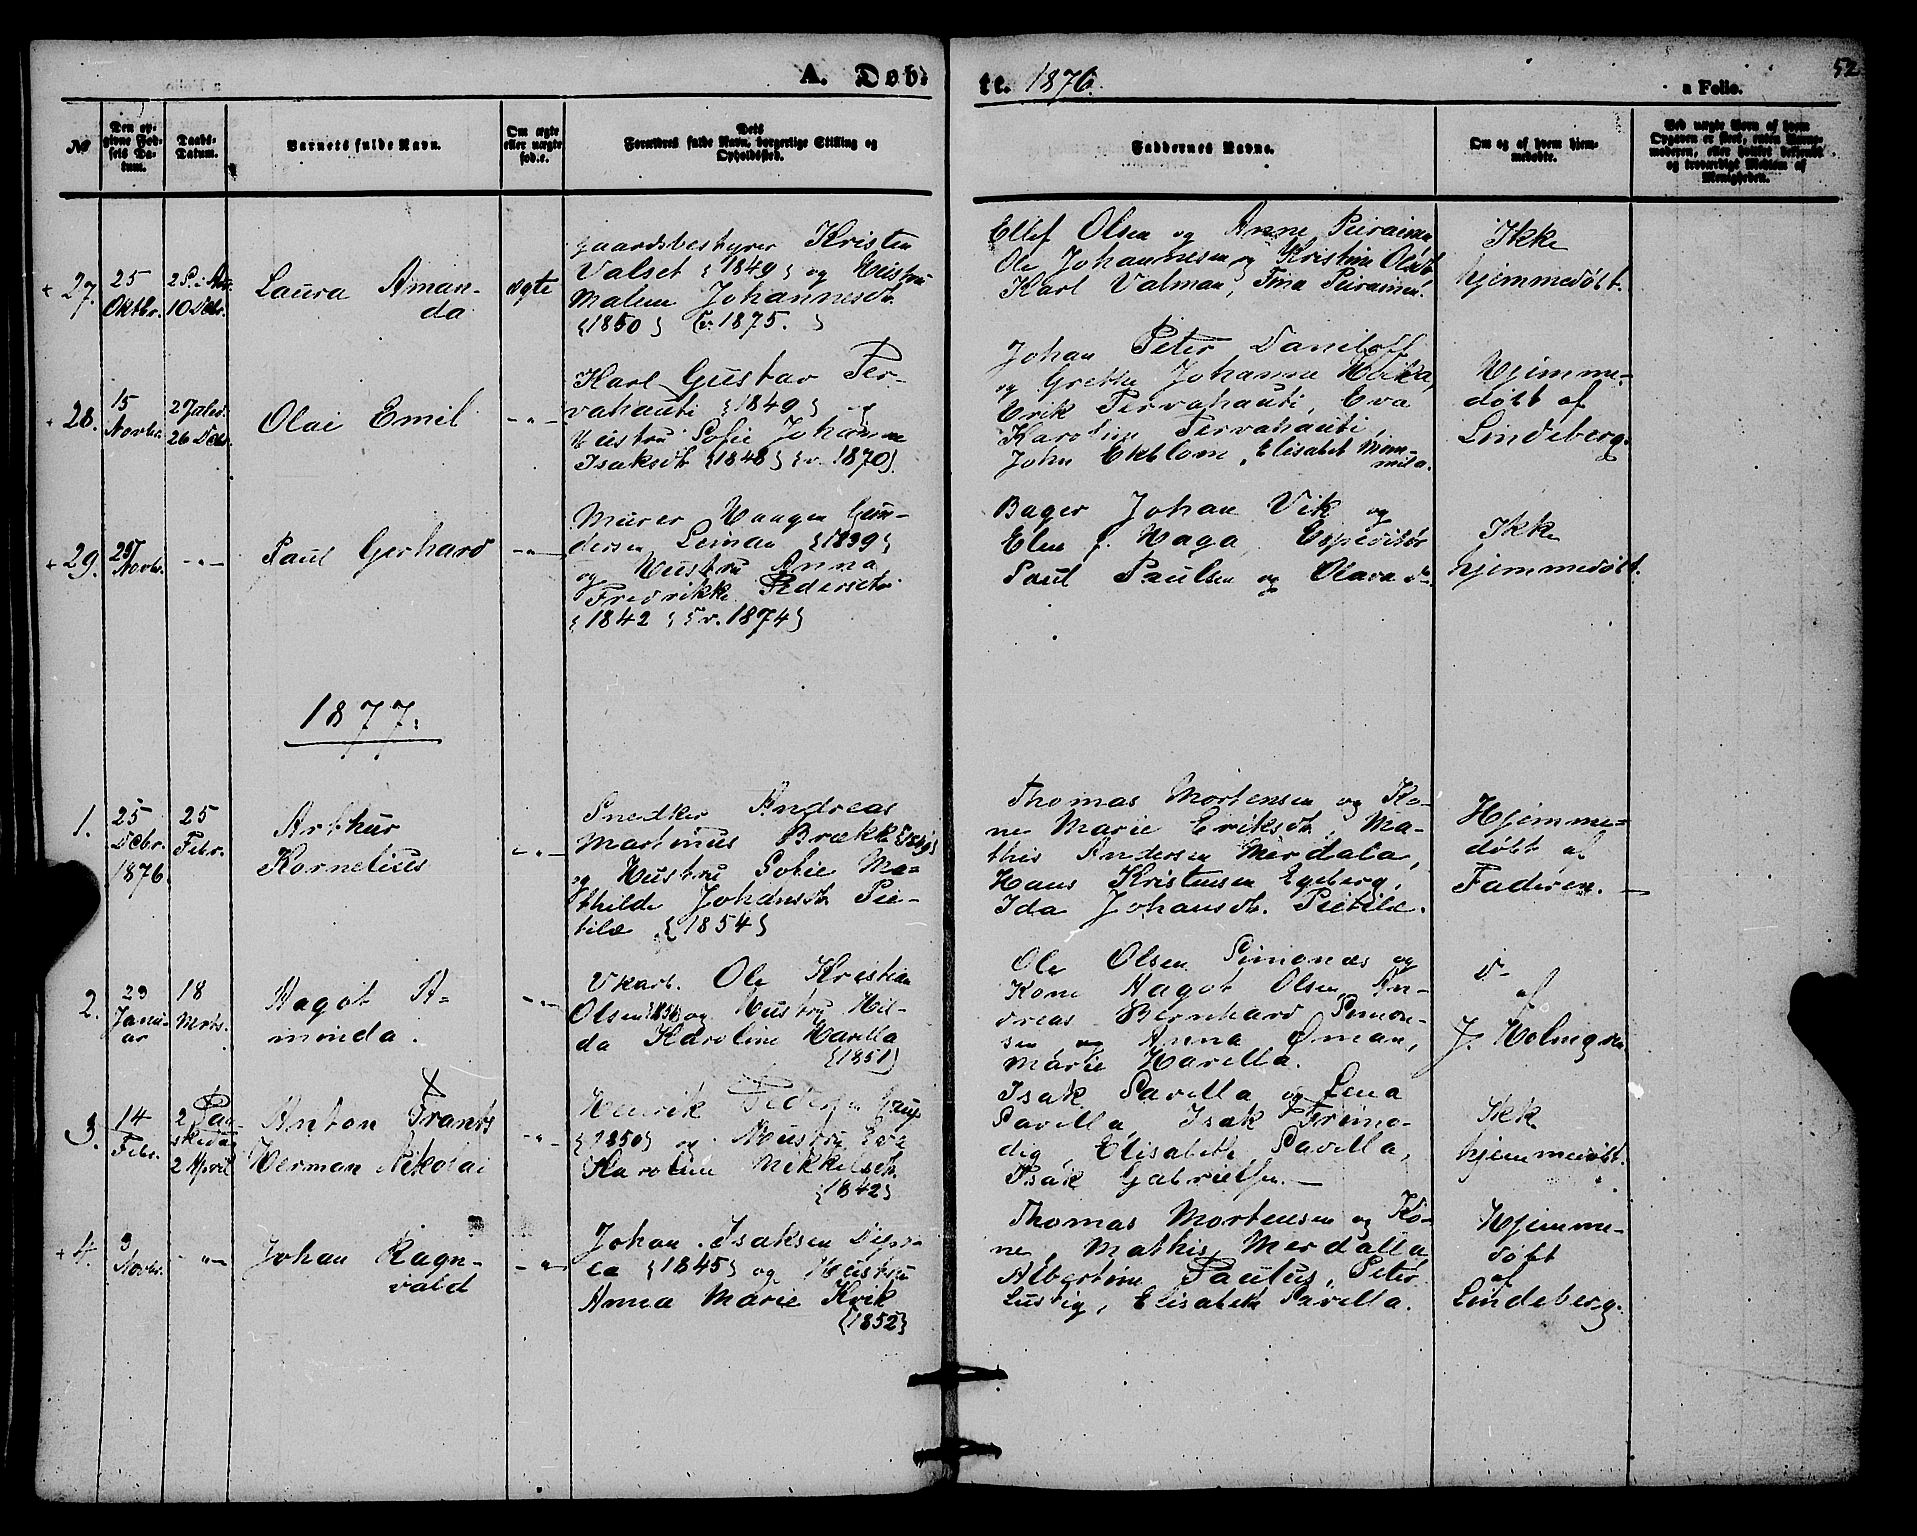 A. Døb-
te. 1876.
a Folio.
52
No
Den op-
givne Fød-
sels Da-
tum.
Daabs-
Datum.
Barnets fulde Navn.
Om ægte
eller uægte
født.
Dets
Forældres fulde Navn, borgerlige Stilling og
Opholdssted.
Faddernes Navne.
Om og af hvem hjem-
medøbt.
27.
25
Oktbr.
10 Debr.
Laura Aman-
da
ægte
Gaardsbestyrer Kristen
Valset {1849} og Hustru
Malene Johannesdt
{1850} {v. 1875.}
Ellef Olsen og Anne
Ole Johannesen og Kristine Olsdt
Karl Valman, Tina
Ikke
hjemmedøbt.
28.
15
Novbr.
2 Juled.
26 Debr.
Olai Emil
-"-
Karl Gustav Per-
vahauti {1849} og
Hustru Sofie Johanne
Isaksdt {1848} {v. 1870}
Johan Peter Daniloff
og Grethe Johanne
Erik Pervahauti, Eva
Karoline Pervahauti,
John Ekblom, Elisabet
Hjemme-
døbt af
Lindeberg.
29.
Novbr.
-"-
Paul Gerhard
-"-
Murer Haagen Gun-
dersen Leiman {1839}
og Hustru Anna
Fredrikke Pedersdtr
{1842} {v. 1874}
Bager Johan Vik og
Elen f. Haga, Expeditør
Paul Paulsen og Olava do
Ikke
hjemmedøbt.
1877.
1.
25
Debr.
1876
25
Febr.
Arthur
Kornelius
-"-
Snedker Andreas
Martinus Brække
og Hustru Sofie Ma-
thilde Johansdt Pie-
tilæ {1854}
Thomas Mortensen og Ko-
ne Marie Eriksdt, Ma-
this Andersen Merdala,
Hans Kristensen Egeberg,
Ida Johansdt. Pietilæ.
Hjemme-
døbt af
Faderen. —
2.
23
Janu-
ar
18
Marts.
Hagot A-
minda.
-"-
Ole Kristian
Olsen og Hustru Hil-
da Karoline Harilla
{1851}
Ole Olsen Simonæs og
Kone Hagot Olsen, An-
dreas Bernhard Simon-
sen og Anna Øman,
Marie Harilla.
Do
af
J. Holmgren
3.
14
Febr.
2 Paa-
skedag
2 April
Anton Frants
Herman Nikolai
-"-
Henrik Pedersen
{1850} og Hustru Eva
Karoline Mikkelsdt.
{1842}
Isak Savilla og Lena
Savilla, Isak Frimo-
dig, Elisabeth Savilla,
Isak Gabrielsen. —
Ikke
hjemmedøbt.
4.
3
Novbr.
-"-
Johan Ragn-
vald
-"-
Johan Isaksen
{1845} og Hustru
Anna Marie Kvik
{1852}
Thomas Mortensen og Ko-
ne, Mathis Merdalla
Albertine Paulus, Peter
Lustig, Elisabeth Savilla.
Hjemme-
døbt
af
Lindeberg.